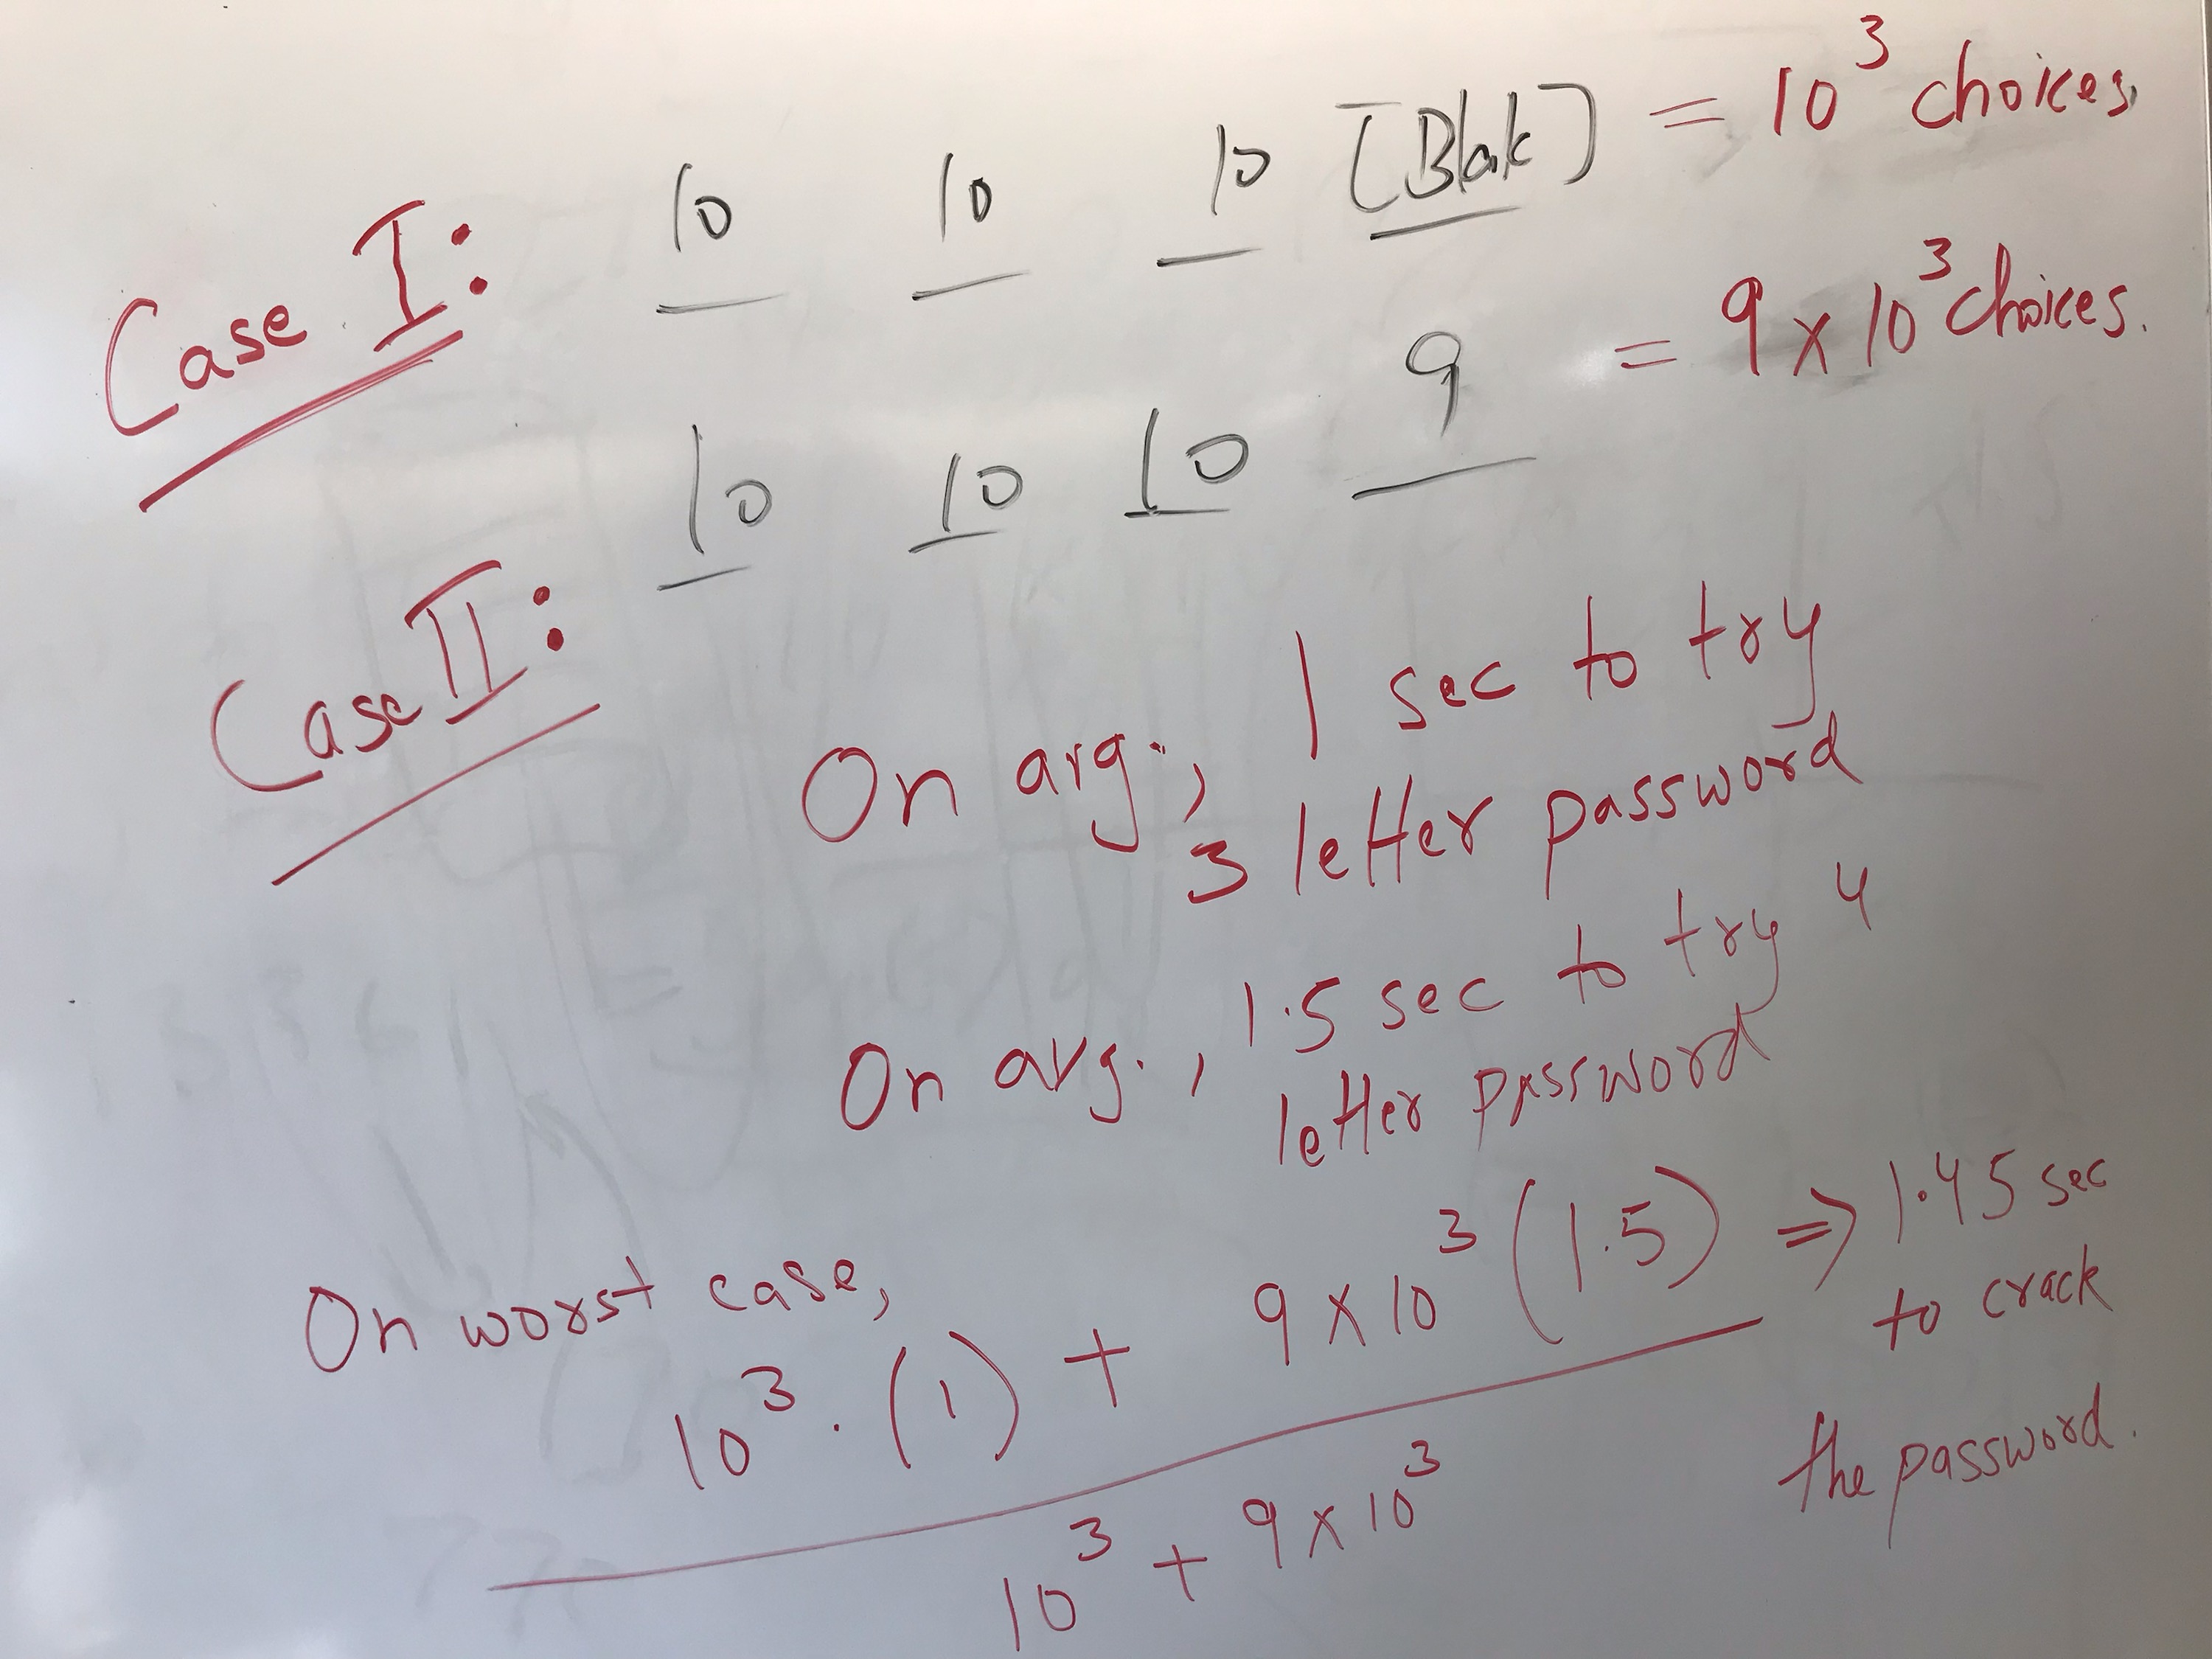 Case I: 10 10 10 [Blak] = 10³ choices.
Case II: 10 10 10 9 = 9 x 10³ choices.
On avg., 1 sec to try
3 letter password
On avg., 1.5 sec to try 4
letter password
On worst case,
10³ . (1) + 9 x 10³ (1.5) ⇒ 1.45 sec
to crack
10³ + 9 x 10³
the password.